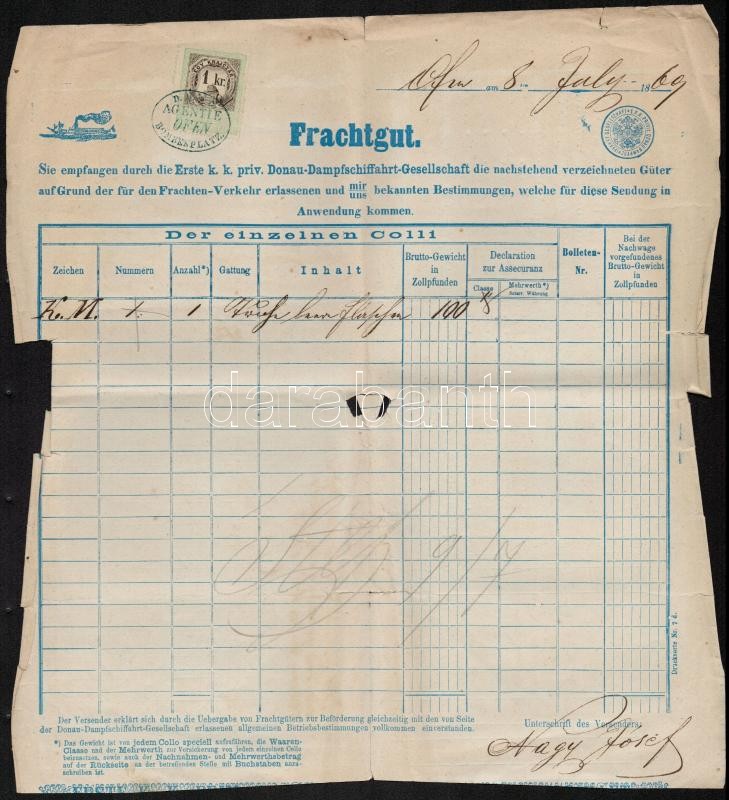 Ofen am 8 July 1869
EGY KRAJCZÁR
1 kr.
AGENTIE
OFEN
BOMBENPLATZ.
Frachtgut.
Sie empfangen durch die Erste k. k. priv. Donau-Dampfschiffahrt-Gesellschaft die nachstehend verzeichneten Güter
auf Grund der für den Frachten-Verkehr erlassenen und mir/uns bekannten Bestimmungen, welche für diese Sendung in
Anwendung kommen.
Der einzelnen Colli
Zeichen Nummern Anzahl*) Gattung Inhalt Brutto-Gewicht in Zollpfunden Declaration zur Assecuranz Classe Mehrwerth*) Oesterr. Währung Bolleten-Nr. Bei der Nachwage vorgefundenes Brutto-Gewicht in Zollpfunden
K. N. 1 1 Truhe leere Flaschen 100 8
darabanth
9/7
Druckserte Nr. 7 d.
Der Versender erklärt sich durch die Uebergabe von Frachtgütern zur Beförderung gleichzeitig mit den von Seite
der Donau-Dampfschiffahrt-Gesellschaft erlassenen allgemeinen Betriebsbestimmungen vollkommen einverstanden.
*) Das Gewicht ist von jedem Collo speciell aufzuführen, die Waaren-
Classe und der Mehrwerth zur Versicherung von jedem einzelnen Collo
beizusetzen, sowie auch der Nachnahmen- und Mehrwerthsbetrag
auf der Rückseite an der betreffenden Stelle mit Buchstaben anzu-
schreiben ist.
Unterschrift des Versenders:
Nagy Josef